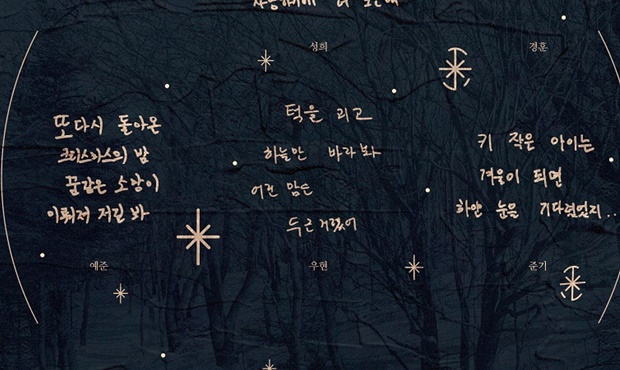 성희
경훈
또다시 돌아온
크리스마스의 밤
꿈같은 소망이
이뤄져 저길 봐
턱을 괴고
하늘만 바라봐
어린 맘은
두근거렸어
키 작은 아이는
겨울이 되면
하얀 눈을 기다렸었지..
예준
우현
준기